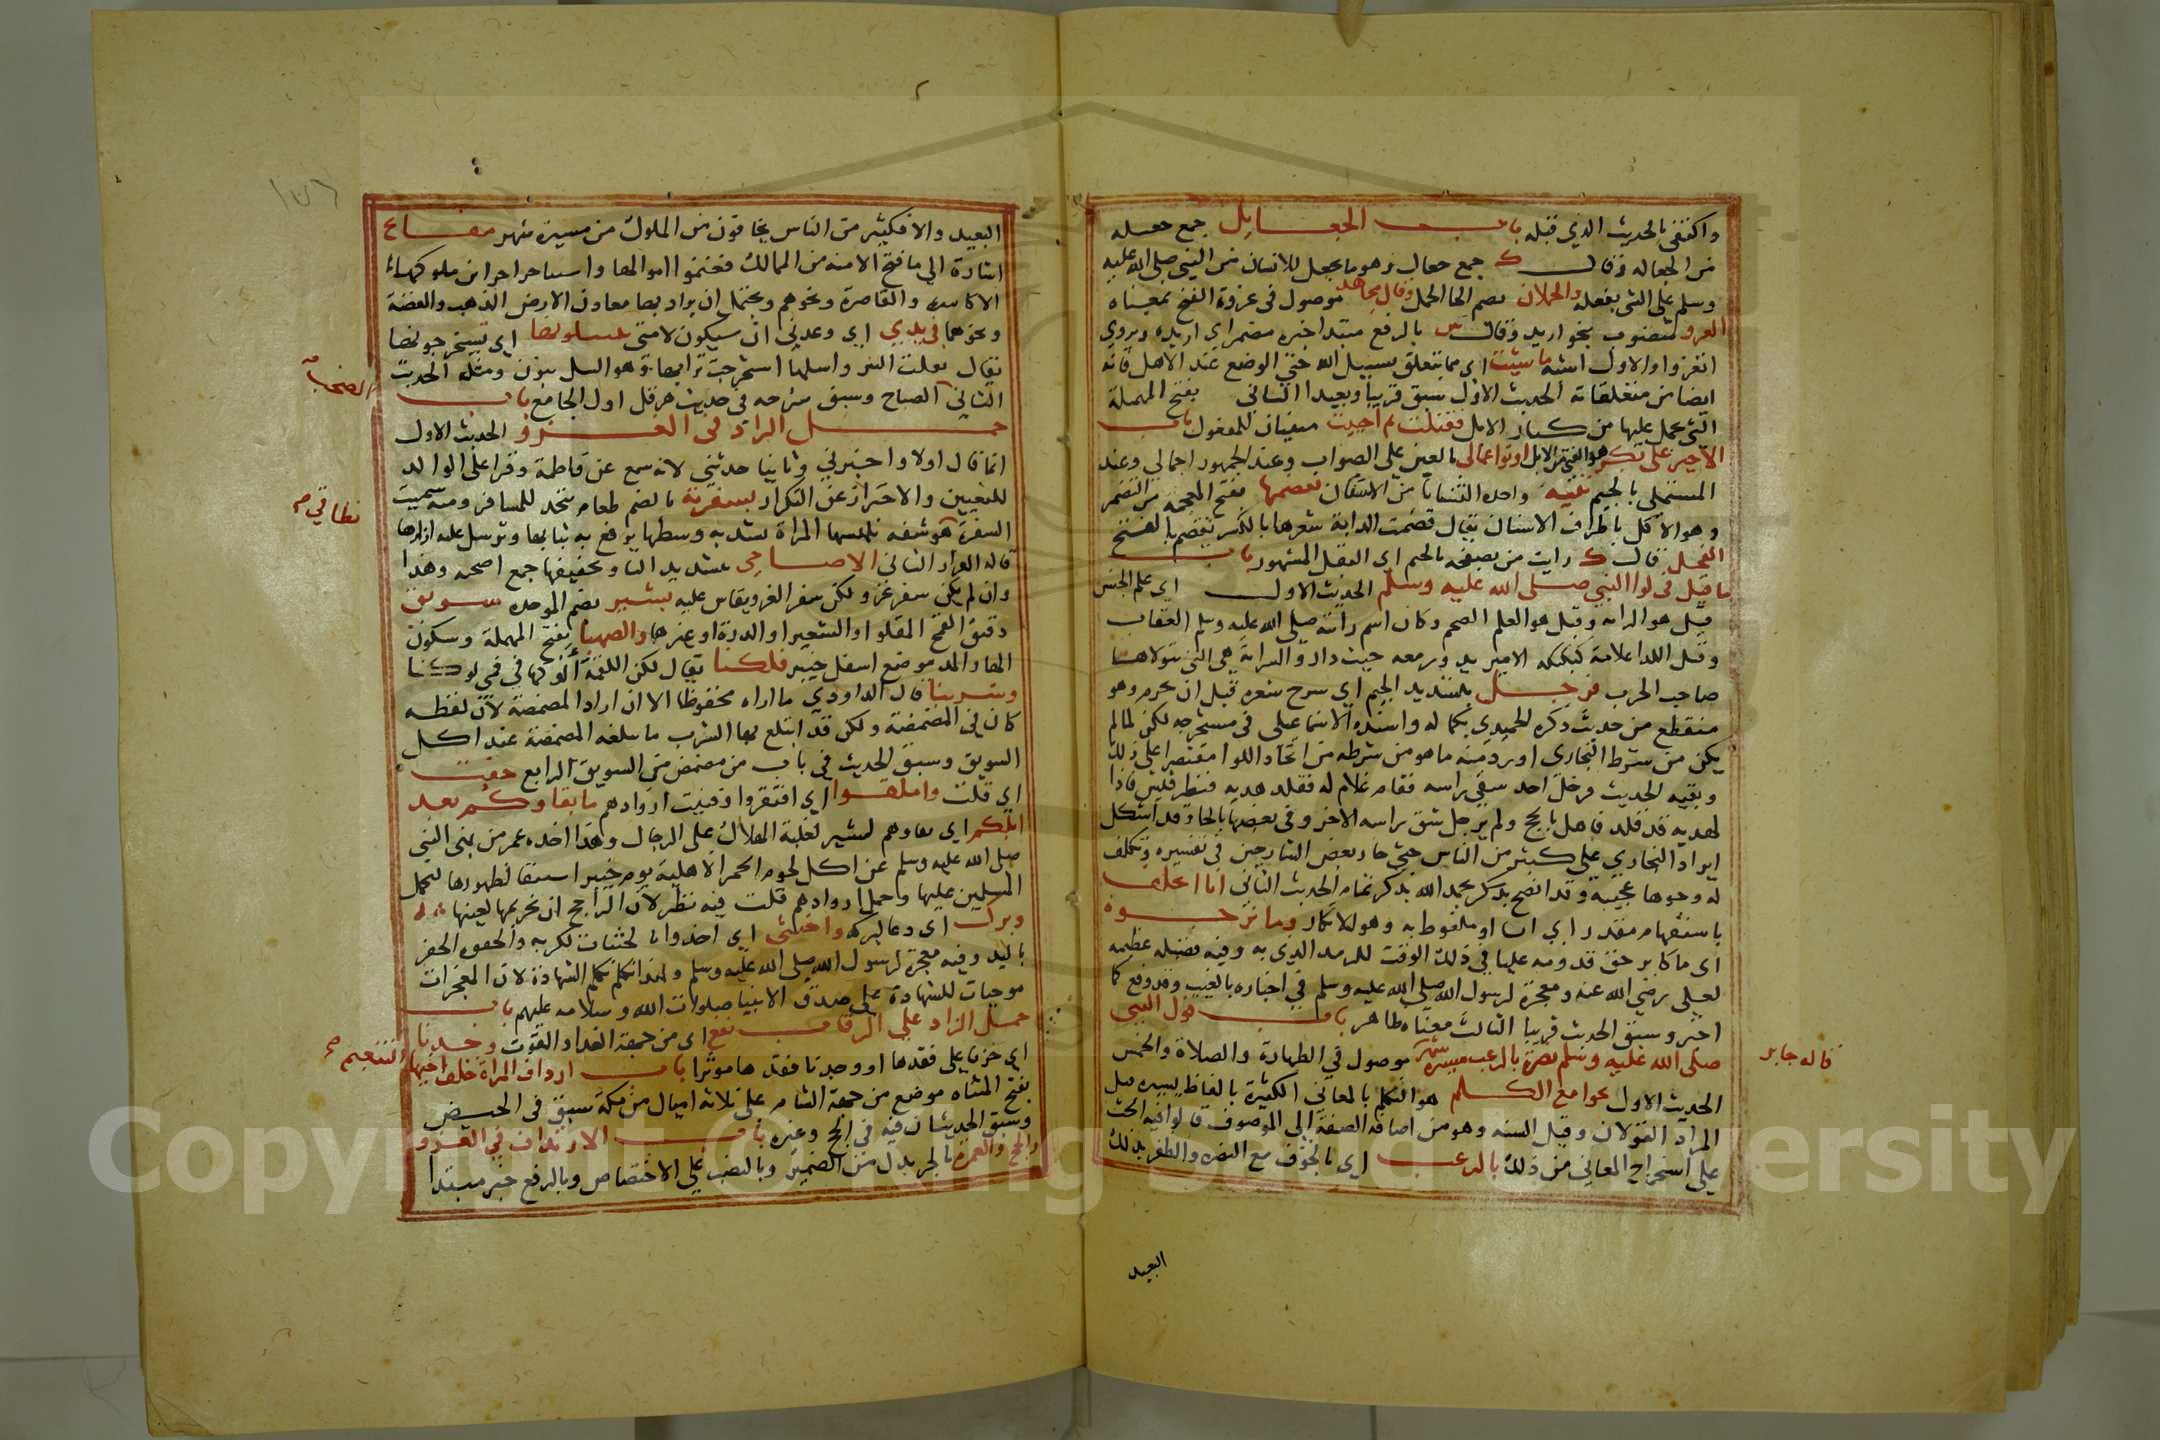 واكتفى بالحديث الذي قبله باب الجعايل جمع جعله
من الجعاله وقال ك جمع جعال وهو ما يجعل للانسان من النبي صلى الله عليه
وسلم على الشي بفعله والحملان بضم الحا الحمل وقال مجاهد موصول في غزوة الفتح بمعناه
الغزو منصوب بنحو اريد وقال س بالرفع مبتدا خبره مضمر اي اريده ويروي
اتغزوا والاول اشبه ما شيت اي مما يتعلق بسبيل الله حتى الوضع عند الاهل فانه
ايضا من متعلقاته الحديث الاول سبق قريبا وبعيدا الثاني بفتح المهملة
التي يحمل عليها من كبار الابل فقتلت ثم اجيت مبنيان للمفعول باب
الاجير على بكر هو الفتي من الابل اوثق اعمالي بالعين على الصواب وعند الجمهور اجمالي وعند
المستملي بالجيم ثنيه واحدة الثنايا من الاسنان يقضمها بفتح المعجمه من القضم
وهو الاكل باطراف الاسنان يقال قضمت الدابة شعيرها بالكسر تقضم بالفتح
الفحل قال ك رايت من يصحفه بالجيم اي البقل المشهور باب
ما قيل في لوا النبي صلى الله عليه وسلم الحديث الاول اي علم الجنس
قيل هو الرايه وقيل هو العلم الضخم وكان اسم رايته صلى الله عليه وسلم العقاب
وقيل اللوا علامة كبكبه الامير يدور معه حيث دار والراية هي التي يتولاها
صاحب الحرب فرجل بتشديد الجيم اي سرح شعره قبل ان يحرم وهو
منقطع من حديث ذكره الحميدي بكماله واسنده الاسماعيلي في مستخرجه لكن لما لم
يكن من شرط البخاري اورد منه ما هو من شرطه من اتخاذ اللوا مقتصرا على ذلك
وبقيه الحديث فرجل احد شقي راسه فقام غلام له فقلد هديه فنظر قيس فاذا
لهديه قد قلد فاهل بالحج ولم يرجل شق راسه الاخر وفي بعضها بالحا وقد اشكل
ايراد البخاري على كبير من الناس حتى حار بعض الشارحين في تفسيره وتكلف
له وجوها عجيبة وقد اتضح بذكر بحمد الله بذكر تمام الحديث الثاني انا اتخلف
باستفهام مقدر اي انا او ملفوظ به وهو للانكار وما نرجوه
اي ما كان يرجو قدومه علينا في ذلك الوقت للرمد الذي به وفيه فضيله عظيمه
لعلي رضي الله عنه ومعجزة لرسول الله صلى الله عليه وسلم في اخباره بالغيب وقد وقع كما
اخبر وسبق الحديث قريبا الثالث معناه ظاهر باب قول النبي
صلى الله عليه وسلم نصرت بالرعب مسيرة شهر موصول في الطهارة والصلاة والخمس
قاله جابر
الحديث الاول بجوامع الكلم هو التكلم بالمعاني الكثيرة بالفاظ يسيره قيل
المراد القران وقيل السنه وهو من اضافه الصفة الى الموصوف قالوا فيه الحث
على استخراج المعاني من ذلك بالرعب اي بالخوف مع النصر والظفر بذلك
البعيد
البعيد والا فكثير من الناس يخافون من الملوك من مسيرة شهر مفاتح
اشارة الي ما فتح لامته من الممالك فغنموا اموالها واستباحوا خزاين ملوكها
الاكاسره والقياصرة ونحوهم ويحتمل ان يراد بها معادن الارض الذهب والفضة
ونحوهما في يدي اي وعدني ان سيكون لامتي تنتثلونها اي تستخرجونها
يقال نثلت البير وانتثلتها استخرجت ترابها وهو النبل
الثاني الصباح وسبق شرحه في حديث هرقل اول الجامع باب
الصخب
حمل الزاد في الغزو الحديث الاول
انما قال اولا واخبرني وثانيا حدثتني لانه سمع عن فاطمة وقرا على الوالد
للتعيين والاحتراز عن التكرار بسفرته بالضم طعام يتخذ للمسافر ومنه سميت
السفرة هو شقه تلبسها المراة تشد به وسطها يرفع به ثيابها وترسل عليه ازارها
نطاقي
قاله الفراء الثاني الاضاحي بتشديد اليا وتخفيفها جمع اضحيه وهذا
وان لم يكن سفر غزو لكن سفر الغزو يقاس عليه بشير بضم الموحده سويق
دقيق القمح المقلو او الشعير او الذرة او غيرها والصهبا بفتح المهملة وسكون
الها والمد موضع اسفل خيبر فلكنا يقال لكت اللقمة الوكها في فمي لوكا
وشربنا قال الداودي ما اراه محفوظا الا ان اراد المضمضة لان لفظه
كان في المضمضة ولكن قد ابتلع بها الشرب ما بلغه المضمضة عند اكل
السويق وسبق الحديث في باب من مضمض من السويق الرابع خفت
اي قلت واملقوا اي افتقروا وفنيت ازوادهم ما بقاوكم بعد
ابلكم اي بقاوهم يشير لغلبة الهلاك على الرجال وهذا اخذه عمر من نهي النبي
صلى الله عليه وسلم عن اكل لحوم الحمر الاهلية يوم خيبر استبقا لظهورها ليحمل
المسلمين عليها وحمل ازوادهم قلت فيه نظر لان الراجح ان تحريمها لعينها
وبرك اي دعا بالبركه واحتثى اي اخذوا بالحثيات لكثرته والحثو الحفن
باليد وفيه معجزة لرسول الله صلى الله عليه وسلم ولهذا تكلم بكلم الشهادة لان المعجزات
موجبات للشهادة على صدق الانبيا صلوات الله وسلامه عليهم باب
حمل الزاد على الرقاب تقع اي من جهة الغذاء والقوت وجدنا
اي حزنا على فقدها او وجدنا فقدها موثرا باب ارداف المراة خلف اخيها التنعيم
بفتح المثناه موضع من جهة الشام على ثلاثه اميال من مكة سبق في الحيض
وسبق الحديثان فيه في الحج وغيره باب الارتداف في الغزو
والحج والعمرة بالجر بدل من الضمير وبالنصب على الاختصاص وبالرفع خبر مبتدا